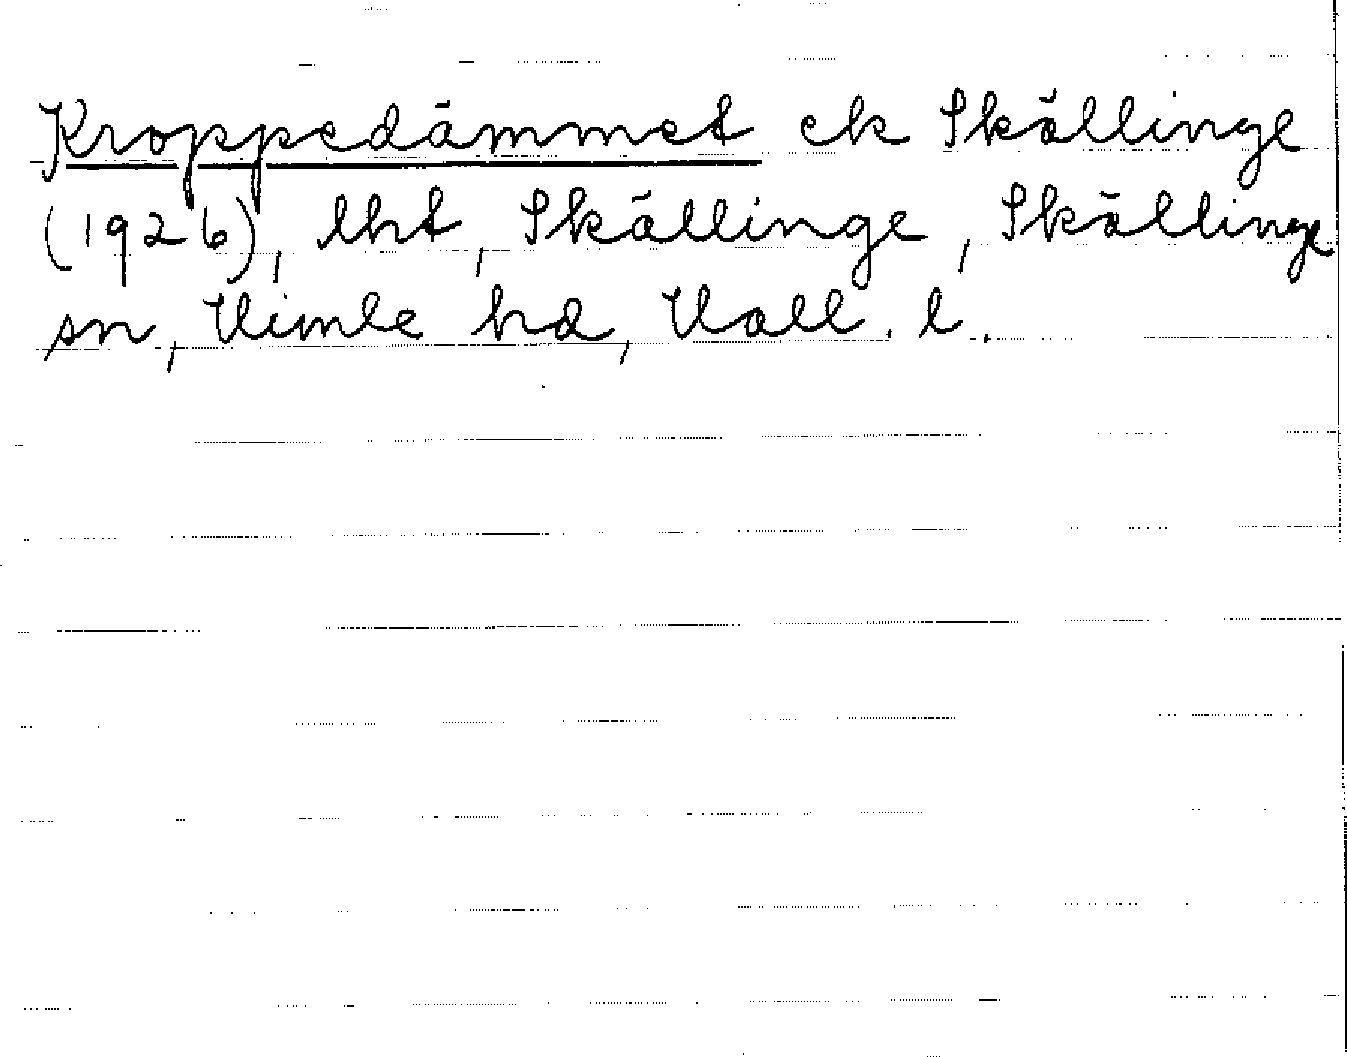 Kroppedämmet ek Skällinge
(1926), lht, Skällinge, Skällinge
sn, Himle hd, Hall. l.